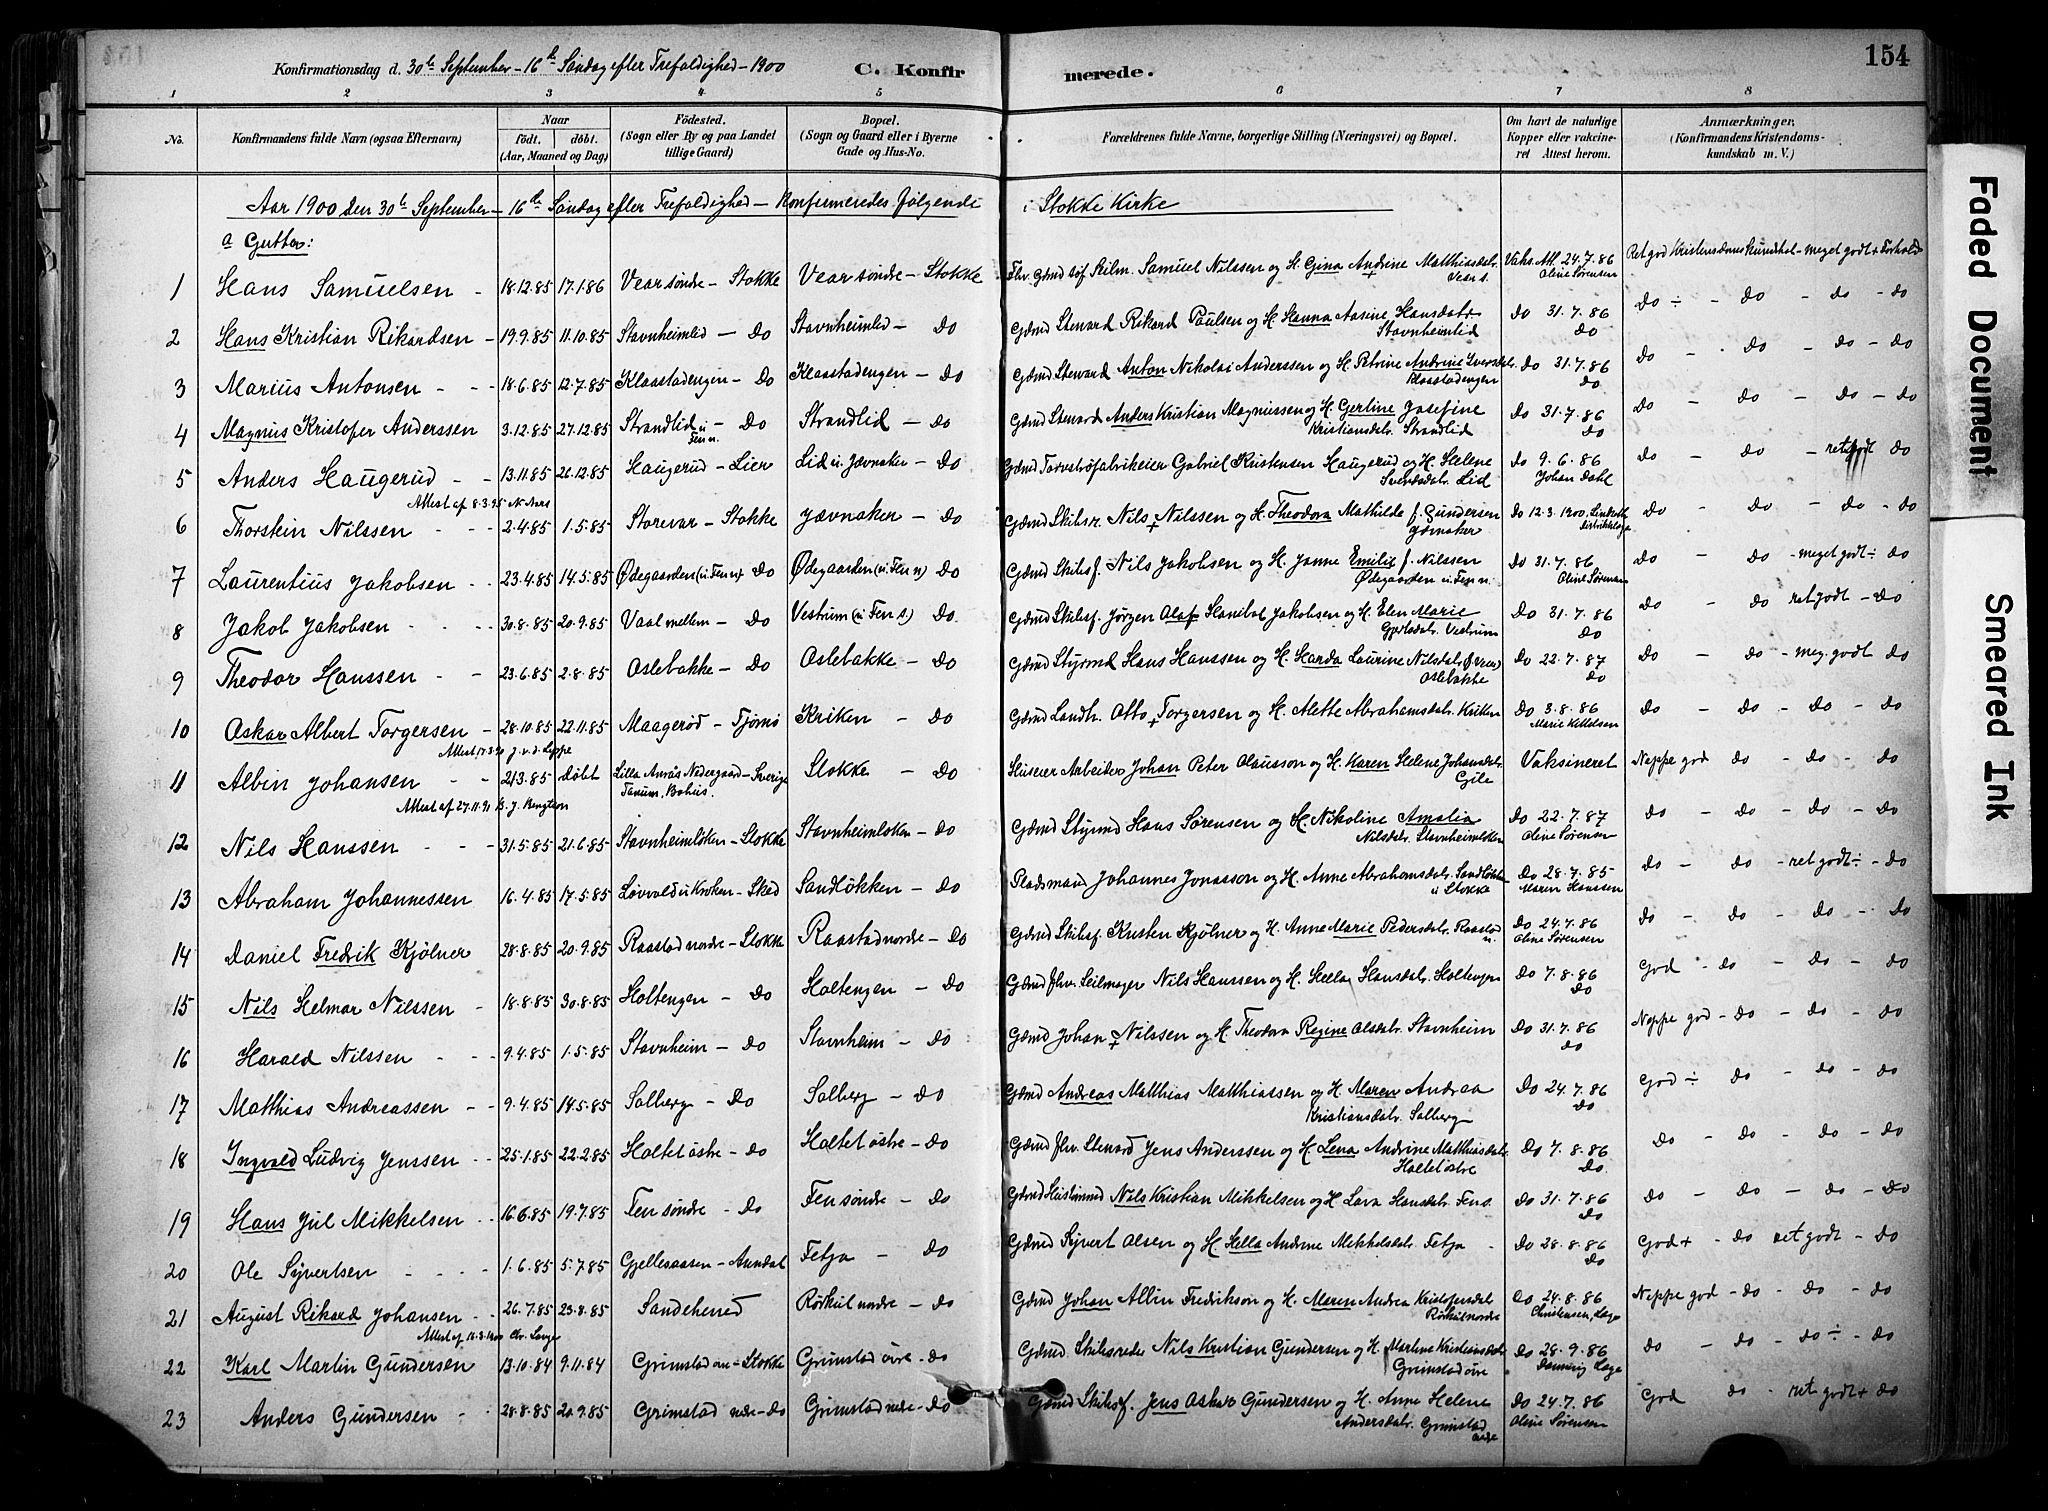 154
Konfirmationsdag d. 30te September - 16de Søndag efter Trefoldighed - 1900 C. Konfir merede.
1 2 3 4 5 6 7 8
No. Konfirmandens fulde Navn (ogsaa Efternavn) Naar født. døbt. (Aar, Maaned og Dag) Fødested. (Sogn eller By og paa Landet tillige Gaard) Bopæl. (Sogn og Gaard eller i Byerne Gade og Hus-No. Forældrenes fulde Navne, borgerlige Stilling (Næringsvei) og Bopæl. Om havt de naturlige Kopper eller vakcineret Attest herom. Anmærkninger. (Konfirmandens Kristendomskundskab m. V.)
Aar 1900 den 30te September - 16de Søndag efter Trefoldighed - Konfirmeredes følgende i Stokke Kirke
a Gutter:
1 Hans Samuelsen - 18.12.85 17.1.86 Vear søndre - Stokke Vear søndre - Stokke Fhv. Gmd Samuel Nilssen og H. Gina Andrine Matthiasdatr. Vear s. Vaks Att. 24.7.86 Oline Sørensen Ret god Kristendomskundskab - meget godt + Forhold
2 Hans Kristian Rikardsen - 19.9.85 11.10.85 Stavnheimlid - Do Stavnheimlid - Do Gdmd Steward Rikard Paulsen og H. Hanna Aasine Hansdatr. Stavnheimlid Do 31.7.86 Do Do ÷ - Do - Do - Do
3 Marius Antonsen - - 18.6.85 12.7.85 Klaastadengen - Do Klaastadengen - Do Gdmd Steward Anton Nikolai Anderssen og H. Petrine Andrine Iversdatr. Klaastadengen Do 31.7.86 Do Do - Do - Do - Do
4 Magnus Kristofer Anderssen 3.12.85 27.12.85 Strandlid u. Fen n. - Do Strandlid - Do Gdmd Steward Anders Kristian Magnussen og H. Gerline Josefine Kristiansdatr. Strandlid Do 31.7.86 Do Do - Do - Do - Do
5 Anders Haugerud - - 13.11.85 26.12.85 Haugerud - Lier Lid u. Jævnaker - Do Gdmd Torvstrøfabrikeier Gabriel Kristensen Haugerud og H. Helene Lid Do 9.6.86 Johan Dahl Do - Do - ret godt Do
Attest af 8.3.95 N. Aars
6 Thorstein Nilssen - - 2.4.85 1.5.85 Storevar - Stokke Jævnaker - Do Gdmd Skibsr. Nils + Nilssen og H. Theodora Mathilde f. Gundersen Jævnaker Do 12.3.1900 distriktslæge Do - Do - Do - Do
7 Laurentius Jakobsen - - 23.4.85 14.5.85 Ødegaarden (u. Fen n) Do Ødegaarden (u. Fen n) Do Gdmd Skibsf. Nils Jakobsen og H. Janne Emilie f. Nilssen Ødegaarden u. Fen n. Do 31.7.86 Oline Sørensen Do - Do - meget godt ÷ Do
8 Jakob Jakobsen - - - 30.8.85 20.9.85 Vaal mellem - Do Vestrum (u Fen s) Do. Gdmd Skibsf. Jørgen Olaf Hanibal Jakobsen og H. Elen Marie Vestrum Do 31.7.86 Do Do - Do ret godt - Do
9 Theodor Hanssen - - 23.6.85 2.8.85 Oslebakke - Do Oslebakke - Do Gdmd Styrmd Hans Hanssen og H. Harda Laurine Nilsdatr. Oslebakke Do 22.7.87 Do Do - Do - meg. godt Do
10 Oskar Albert Torgersen - 28.10.85 22.11.85 Maagerød - Tjømø Kriken - Do Gdmd Landh. Otto + Torgersen og H. Mette Abrahamsdatr. Kriken Do 3.8.86 Marie Do - Do - Do - Do
11 Albin Johansen - - 21.3.85 døbt Lilla Anrås Nedergaard - Sverige Tanum, Bohus. Stokke - Do Arbeider Johan Peter Olausson og H. Karen Helene Johansdatr. Vaksineret Neppe god Do - Do - Do
Attest af 27.11.91 Bengtson
12 Nils Hanssen - - - 31.5.85 21.6.85 Stavnheimløken - Stokke Stavnheimløken - Do Gdmd Styrmd Hans Sørensen og H. Nikoline Amalia Nilsdatr. Stavnheimløken Do 22.7.87 Oline Sørensen Do - Do - Do - Do
13 Abraham Johannessen 16.4.85 17.5.85 Løvvold u Kroken - Skåd Sandløkken - Do Pladsmand Johannes Jonasson og H. Anne Abrahamsdatr. u Stokke Do 28.7.85 Maren Hanssen Do - Do - ret godt ÷ - Do
14 Daniel Fredrik Kjølner 28.8.85 20.9.85 Raastad nordre - Stokke Raastad nordre - Do Gdmd Skibsf. Kristen Kjølner og H. Anne Marie Pedersdatr. Raastad n. Do 24.7.86 Oline Sørensen Do - Do - Do - Do
15 Nils Helmar Nilssen - 18.8.85 30.8.85 Holtengen - Do Holtengen - Do Gdmd fhv. Seilmager Nils Hanssen og H. Hella Hansdatr. Holtengen Do 7.8.86 Do God - Do - Do - Do
16 Harald Nilssen - - 9.4.85 1.5.85 Stavnheim - Do Stavnheim - Do Gdmd Johan + Nilssen og H. Theodora Regine Olsdatr. Stavnheim Do 31.7.86 Do Neppe god - Do - Do - Do
17 Matthias Andreassen - - 9.4.85 14.5.85 Solberg - Do Solberg - Do Gdmd Andreas Matthias Matthiassen og H. Maren Andrea Kristiansdatr. Solberg Do 24.7.86 Do God ÷ - Do - Do - Do
18 Ingvald Ludvig Jenssen - - 25.1.85 22.2.85 Holtet østre - Do Holtet østre - Do Gdmd fhv. Steward Jens Anderssen og H. Lena Andrine Matthiasdatr. Holtet østre Do 7.8.86 Do. Do - Do - Do - Do
19 Hans Jul Mikkelsen - - 16.6.85 19.7.85 Fen søndre - Do Fen søndre - Do Gdmd Nils Kristian Mikkelsen og H. Lava Hansdatr. Fen s. Do 31.7.86 Do Do - Do - Do - Do
20 Ole Syvertsen - - - 1.6.85 5.7.85 - Arendal Fetja - Do Gdmd Syvert Olsen og H. Hella Andrine Mikkelsdatr. Fetja - Do 28.8.86 Do God + - Do ret godt - Do
21 August Rikard Johansen - - 26.7.85 23.8.85 Sandeherred Rørkul nordre - Do Gdmd Johan Albin Fredrikson og H. Maren Andrea Kristofersdatr. Rørkul nordre Do 24.8.86 Christensen, Læge Neppe god - Do - Do - Do
22 Karl Martin Gundersen 13.10.84 9.11.84 Grimstad øvre - Stokke Grimstad øvre - Do Gdmd. Skibsreder Nils Kristian Gundersen og H. Martine Kristiansdatr. Grimstad øvre Do 28.9.86 Læge Do - Do - Do ÷ - Do
23 Anders Gundersen - - 28.8.85 20.9.85 Grimstad nedre - Do Grimstad nedre - Do Gdmd Skibsf. Jens Oskar Gundersen og H. Anne Helene Andersdatr. Grimstad nedre Do 24.7.86 Oline Sørensen God Do - ret godt + Do
Faded Document
Smeared Ink